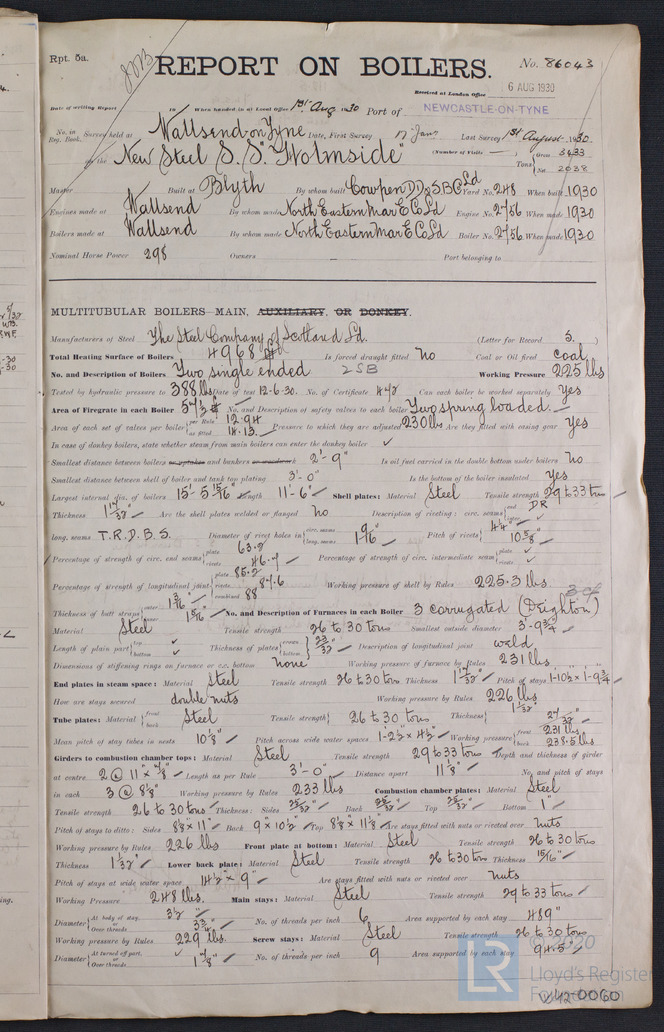 Rpt. 5a.
REPORT ON BOILERS.
No. 86043
Received at London Office
6 AUG 1930
Date of writing Report 19 When handed in at Local Office 1st Aug 1930 Port of NEWCASTLE-ON-TYNE
No. in Reg. Book. Survey held at Wallsend-on-Tyne Date, First Survey 17 Jan Last Survey 1st August 1930
on the New Steel S.S. "Holmside" (Number of Visits ) Tons Gross 3433 Net 2038
Master Built at Blyth By whom built Cowpen DD & SBC Ld Yard No. 248 When built 1930
Engines made at Wallsend By whom made North Eastern Mar E Co Ld Engine No. 2756 When made 1930
Boilers made at Wallsend By whom made North Eastern Mar E Co Ld Boiler No. 2756 When made 1930
Nominal Horse Power 298 Owners Port belonging to
MULTITUBULAR BOILERS—MAIN, AUXILIARY, OR DONKEY.
Manufacturers of Steel The Steel Company of Scotland Ld. (Letter for Record S. )
Total Heating Surface of Boilers 4968 Is forced draught fitted No Coal or Oil fired coal
No. and Description of Boilers Two single ended 2SB Working Pressure 225 lbs
Tested by hydraulic pressure to 388 lbs Date of test 12-6-30. No. of Certificate Can each boiler be worked separately Yes
Area of Firegrate in each Boiler No. and Description of safety valves to each boiler Two spring loaded.
Area of each set of valves per boiler per Rule 12.94 as fitted 14.13 Pressure to which they are adjusted 230 lbs Are they fitted with easing gear Yes
In case of donkey boilers, state whether steam from main boilers can enter the donkey boiler ✓
Smallest distance between boilers or uptakes and bunkers or woodwork 2'-9" Is oil fuel carried in the double bottom under boilers No
Smallest distance between shell of boiler and tank top plating 3'-0" Is the bottom of the boiler insulated Yes
Largest internal dia. of boilers 15'-5 15/16" Length 11'-6" Shell plates: Material Steel Tensile strength 29 to 33 tons
Thickness 1 17/32" Are the shell plates welded or flanged No Description of riveting: circ. seams end DR inter. ✓
long. seams T.R.D.B.S. Diameter of rivet holes in circ. seams long. seams 1 9/16" Pitch of rivets 4 1/4" 10 5/8"
Percentage of strength of circ. end seams plate 63.2 rivets 46.7 Percentage of strength of circ. intermediate seam plate ✓ rivets ✓
Percentage of strength of longitudinal joint plate 85.2 rivets 87.6 combined 88 Working pressure of shell by Rules 225.3 lbs
Thickness of butt straps outer 1 3/16" inner 1 5/16" No. and Description of Furnaces in each Boiler 3 corrugated (Deighton)
Material Steel Tensile strength 26 to 30 tons Smallest outside diameter 3'-9 3/4"
Length of plain part top ✓ bottom ✓ Thickness of plates crown bottom 23/32" Description of longitudinal joint weld
Dimensions of stiffening rings on furnace or c.c. bottom none Working pressure of furnace by Rules 231 lbs
End plates in steam space: Material Steel Tensile strength 26 to 30 tons Thickness 1 17/32" Pitch of stays 1-10 1/2 x 1-9 3/4
How are stays secured double nuts Working pressure by Rules 226 lbs
Tube plates: Material front back Steel Tensile strength 26 to 30 tons Thickness 1 1/32" 27/32"
Mean pitch of stay tubes in nests 10 1/8" Pitch across wide water spaces 1-2 1/2 x 4 1/2 Working pressure front 231 lbs back 238.5 lbs
Girders to combustion chamber tops: Material Steel Tensile strength 29 to 33 tons Depth and thickness of girder
at centre 2 @ 11" x 7/8" Length as per Rule 3'-0" Distance apart 11 1/8" No. and pitch of stays
in each 3 @ 8 1/2" Working pressure by Rules 233 lbs Combustion chamber plates: Material Steel
Tensile strength 26 to 30 tons Thickness: Sides 25/32" Back 25/32" Top 25/32" Bottom 1"
Pitch of stays to ditto: Sides 8 1/2 x 11" Back 9" x 10 1/2 Top 8 1/2 x 11 1/8 Are stays fitted with nuts or riveted over nuts
Working pressure by Rules 226 lbs Front plate at bottom: Material Steel Tensile strength 26 to 30 tons
Thickness 1 1/32" Lower back plate: Material Steel Tensile strength 26 to 30 tons Thickness 15/16"
Pitch of stays at wide water space 14 1/2 x 9" Are stays fitted with nuts or riveted over nuts
Working Pressure 248 lbs. Main stays: Material Steel Tensile strength 29 to 33 tons
Diameter At body of stay, or Over threads 3 1/2" 3 3/4" No. of threads per inch 6 Area supported by each stay 489"
Working pressure by Rules 229 lbs. Screw stays: Material Steel Tensile strength 26 to 30 tons
Diameter At turned off part, or Over threads ✓ 1 7/8" No. of threads per inch 9 Area supported by each stay 94.5
LR © 2020
Lloyd's Register
Foundation
W42-0060